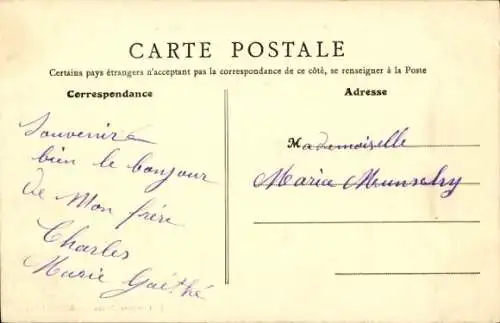 CARTE POSTALE
Certains pays étrangers n'acceptant pas la correspondance de ce côté, se renseigner à la Poste
Correspondance
Adresse
Souvenire
bien le bonjour
de Mon frère
Charles
Marie
Mademoiselle
Maria